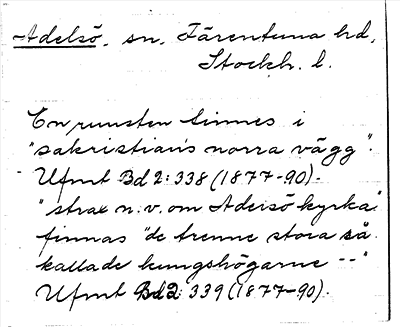 Adelsö, sn, Färentuna hd,
Stockh. l.
En runsten finnes i
"sakristians norra vägg".
Ufmt Bd 2: 338 (1877-90).
"strax n.v. om Adelsö kyrka"
finnas "de trenne stora så
kallade kungshögarne --"
Ufmt Bd 2: 339 (1877-90).